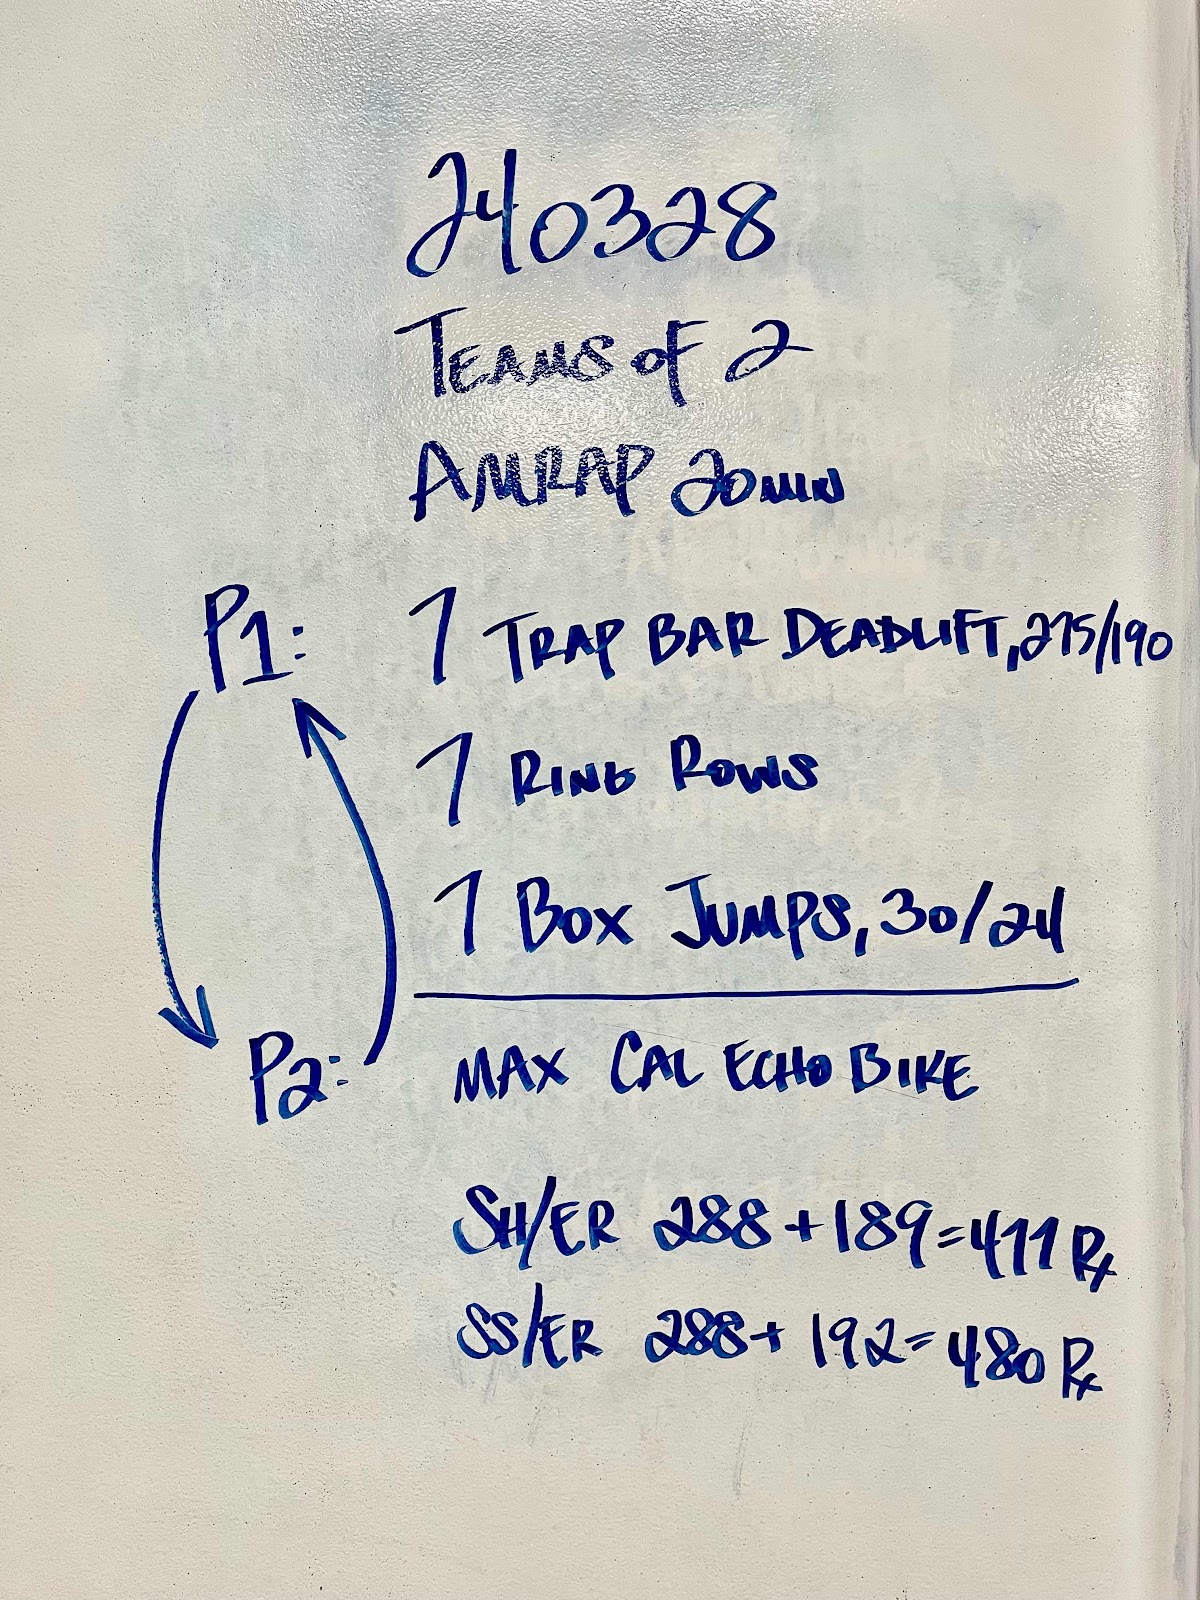 240328
TEAMS OF 2
AMRAP 20MIN
P1: 7 TRAP BAR DEADLIFT, 275/190
7 RING ROWS
7 BOX JUMPS, 30/24
P2: MAX CAL ECHO BIKE
SH/ER 288+189=477 Rx
SS/ER 288+192=480 Rx